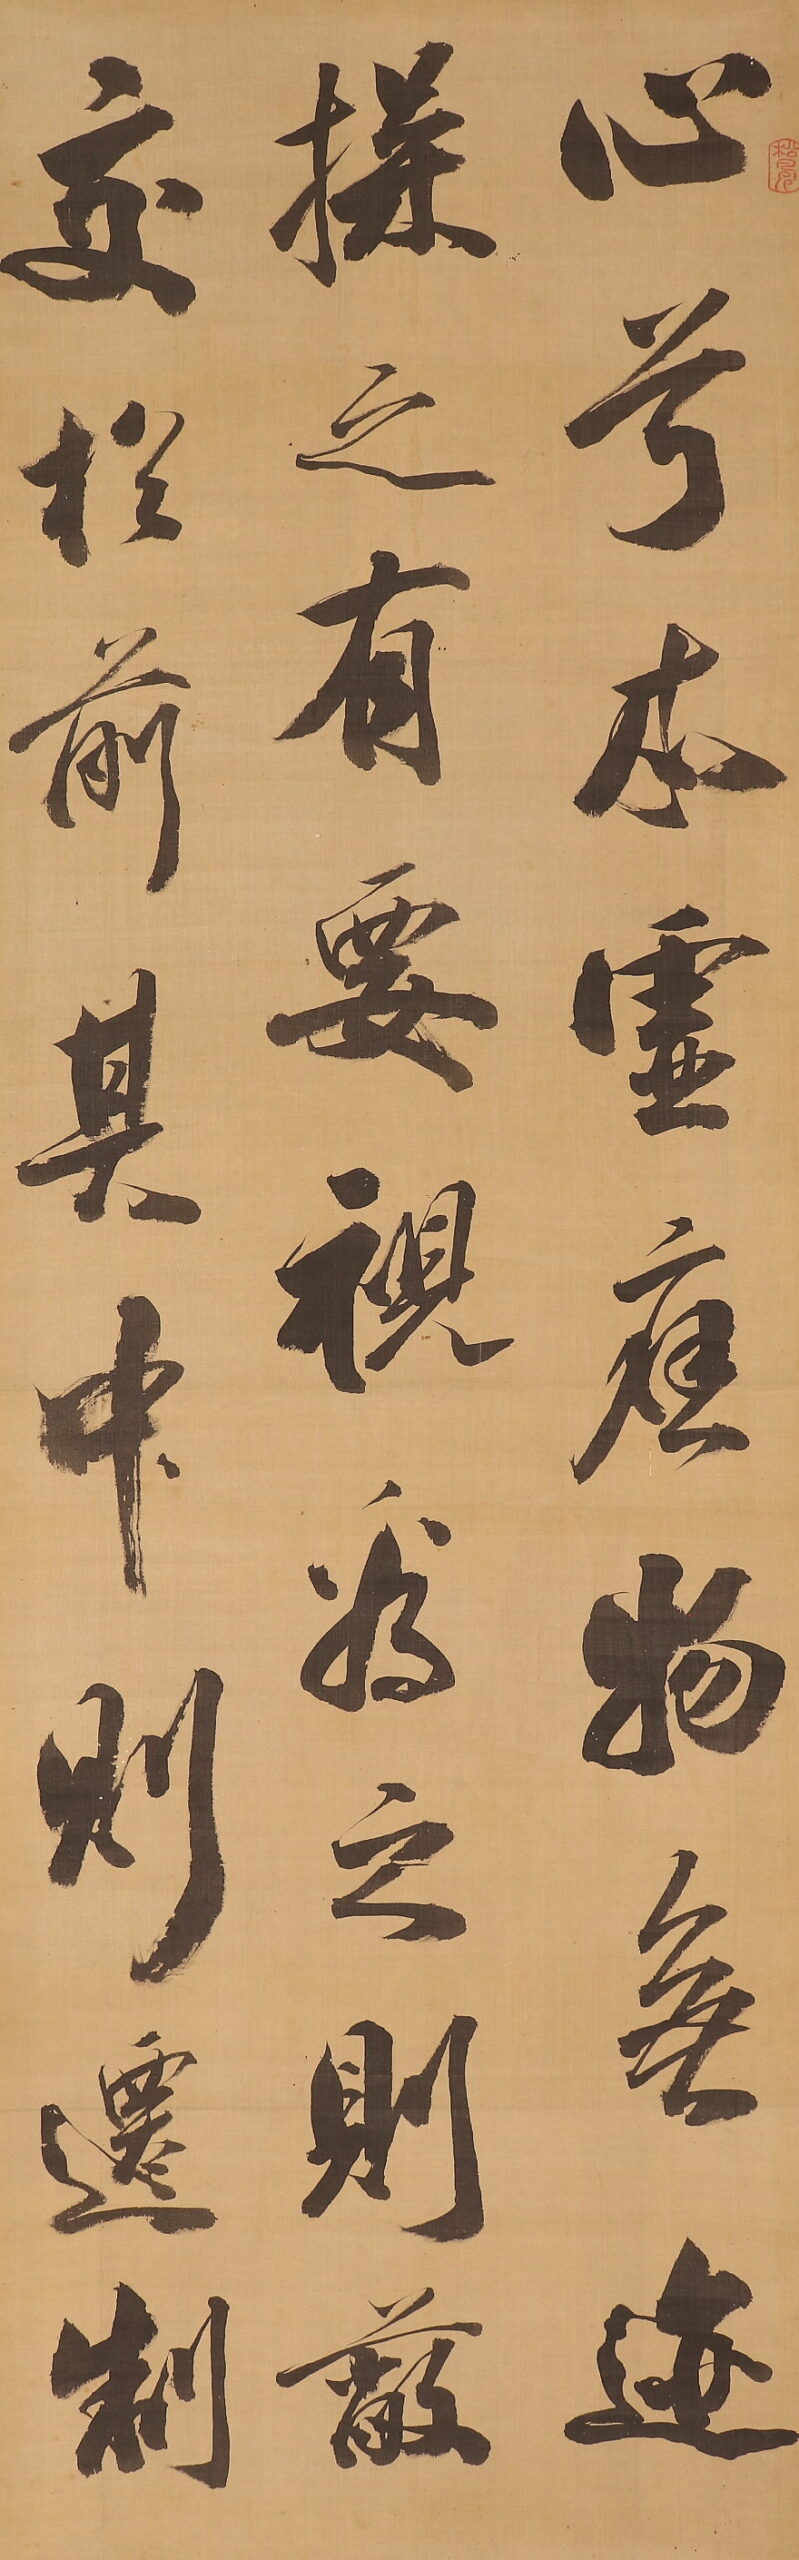 心兮本虚應物無迹
操之有要視為之則蔽
交於前其中則遷制